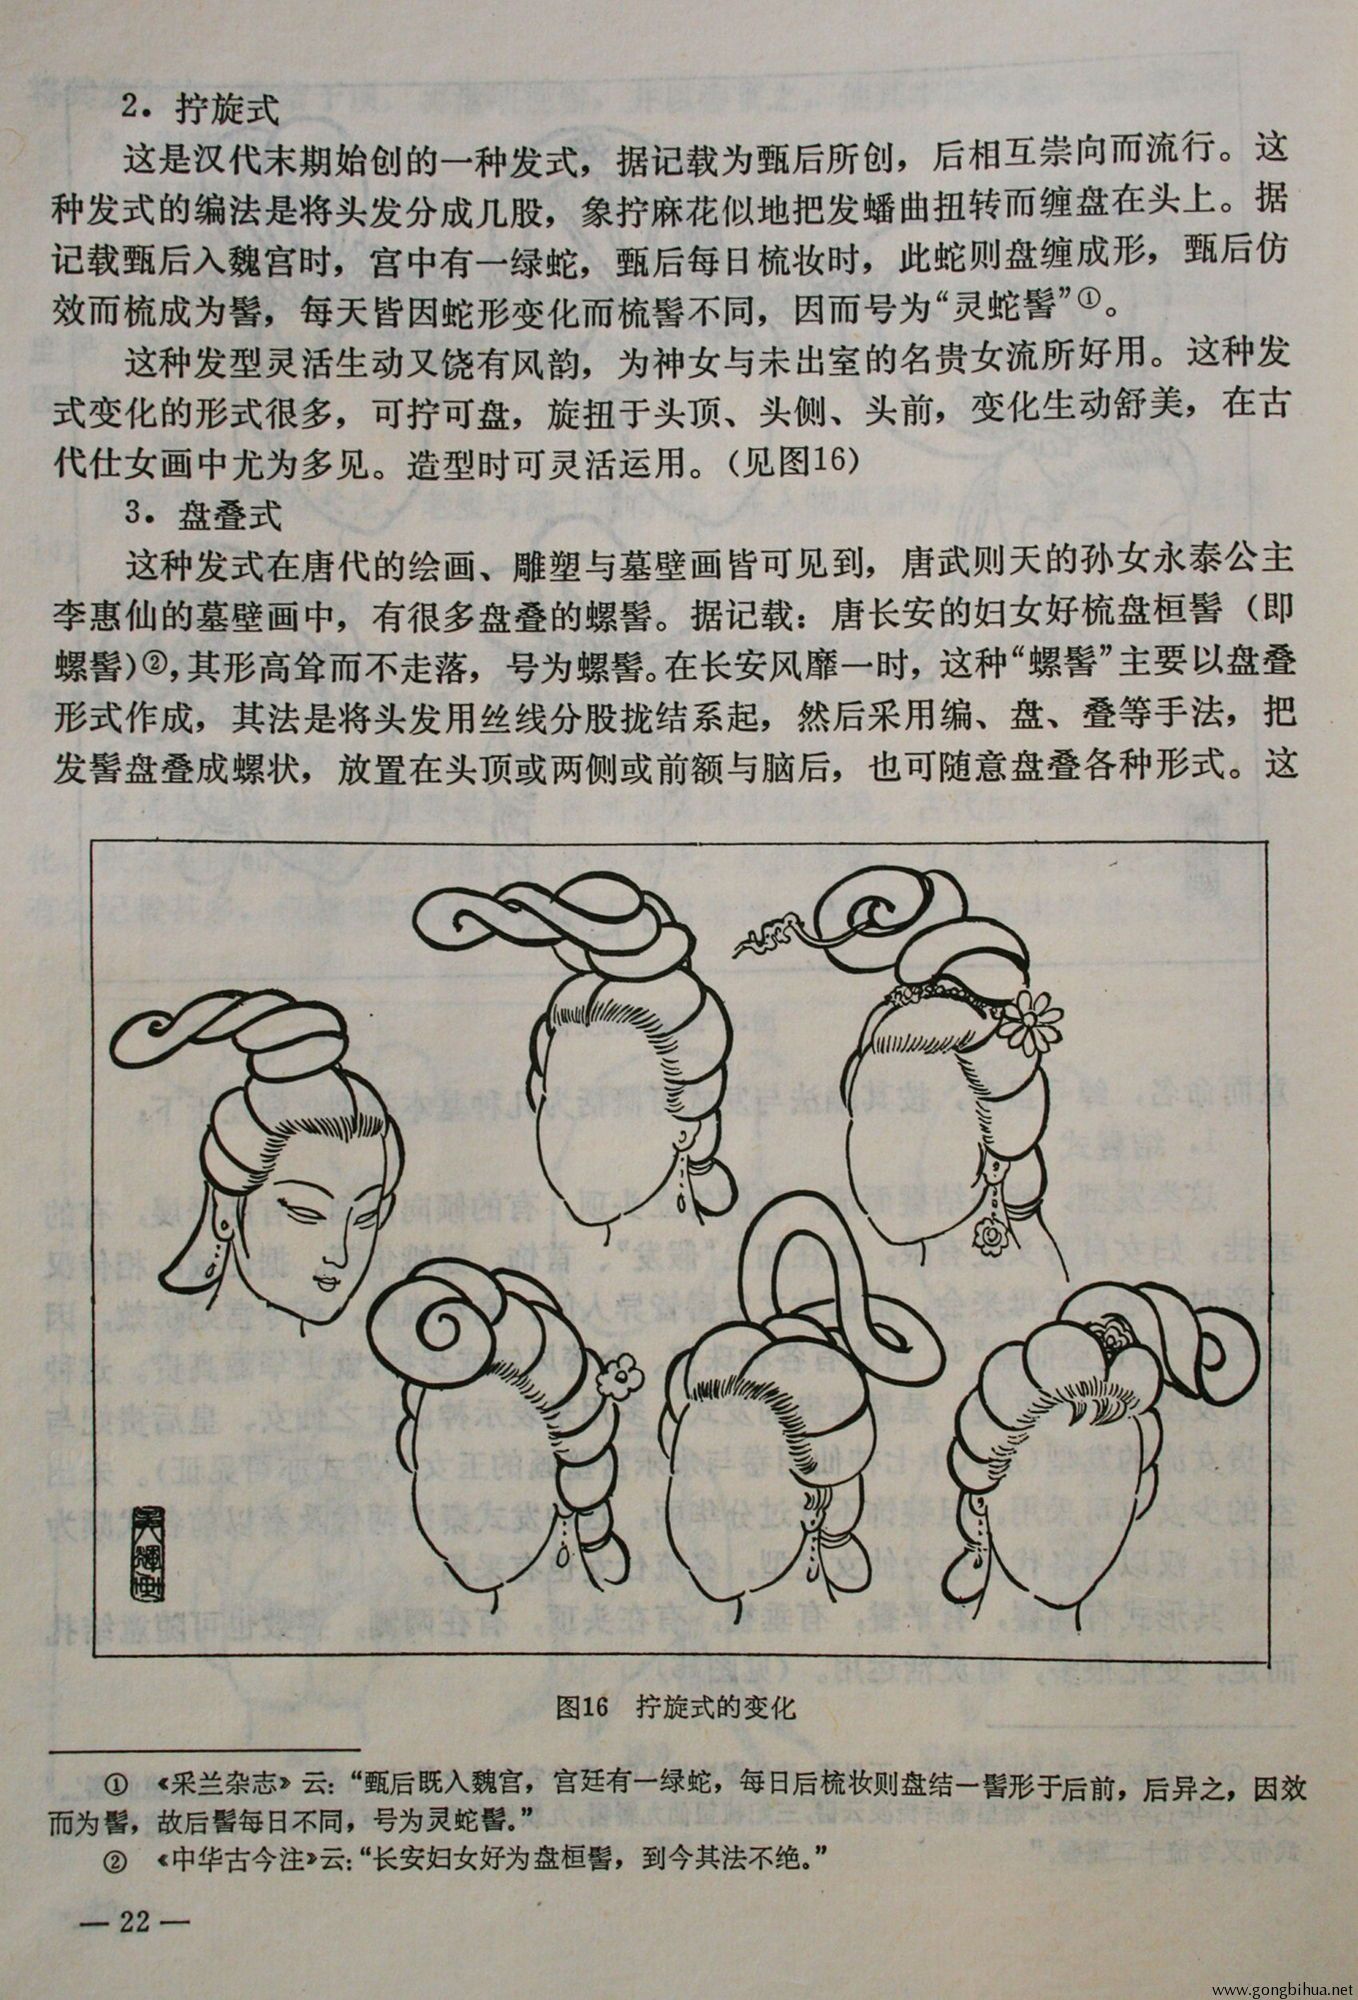 2. 拧旋式
这是汉代末期始创的一种发式，据记载为甄后所创，后相互崇向而流行。这
种发式的编法是将头发分成几股，象拧麻花似地把发蟠曲扭转而缠盘在头上。据
记载甄后入魏宫时，宫中有一绿蛇，甄后每日梳妆时，此蛇则盘缠成形，甄后仿
效而梳成为髻，每天皆因蛇形变化而梳髻不同，因而号为“灵蛇髻”①。
这种发型灵活生动又饶有风韵，为神女与未出室的名贵女流所好用。这种发
式变化的形式很多，可拧可盘，旋扭于头顶、头侧、头前，变化生动舒美，在古
代仕女画中尤为多见。造型时可灵活运用。（见图16）
3. 盘叠式
这种发式在唐代的绘画、雕塑与墓壁画皆可见到，唐武则天的孙女永泰公主
李惠仙的墓壁画中，有很多盘叠的螺髻。据记载：唐长安的妇女好梳盘桓髻（即
螺髻）②，其形高耸而不走落，号为螺髻。在长安风靡一时，这种“螺髻”主要以盘叠
形式作成，其法是将头发用丝线分股拢结系起，然后采用编、盘、叠等手法，把
发髻盘叠成螺状，放置在头顶或两侧或前额与脑后，也可随意盘叠各种形式。这
图16 拧旋式的变化
① 《采兰杂志》云：“甄后既入魏宫，宫廷有一绿蛇，每日后梳妆则盘结一髻形于后前，后异之，因效
而为髻，故后髻每日不同，号为灵蛇髻。”
② 《中华古今注》云：“长安妇女好为盘桓髻，到今其法不绝。”
— 22 —
www.gongbihua.net